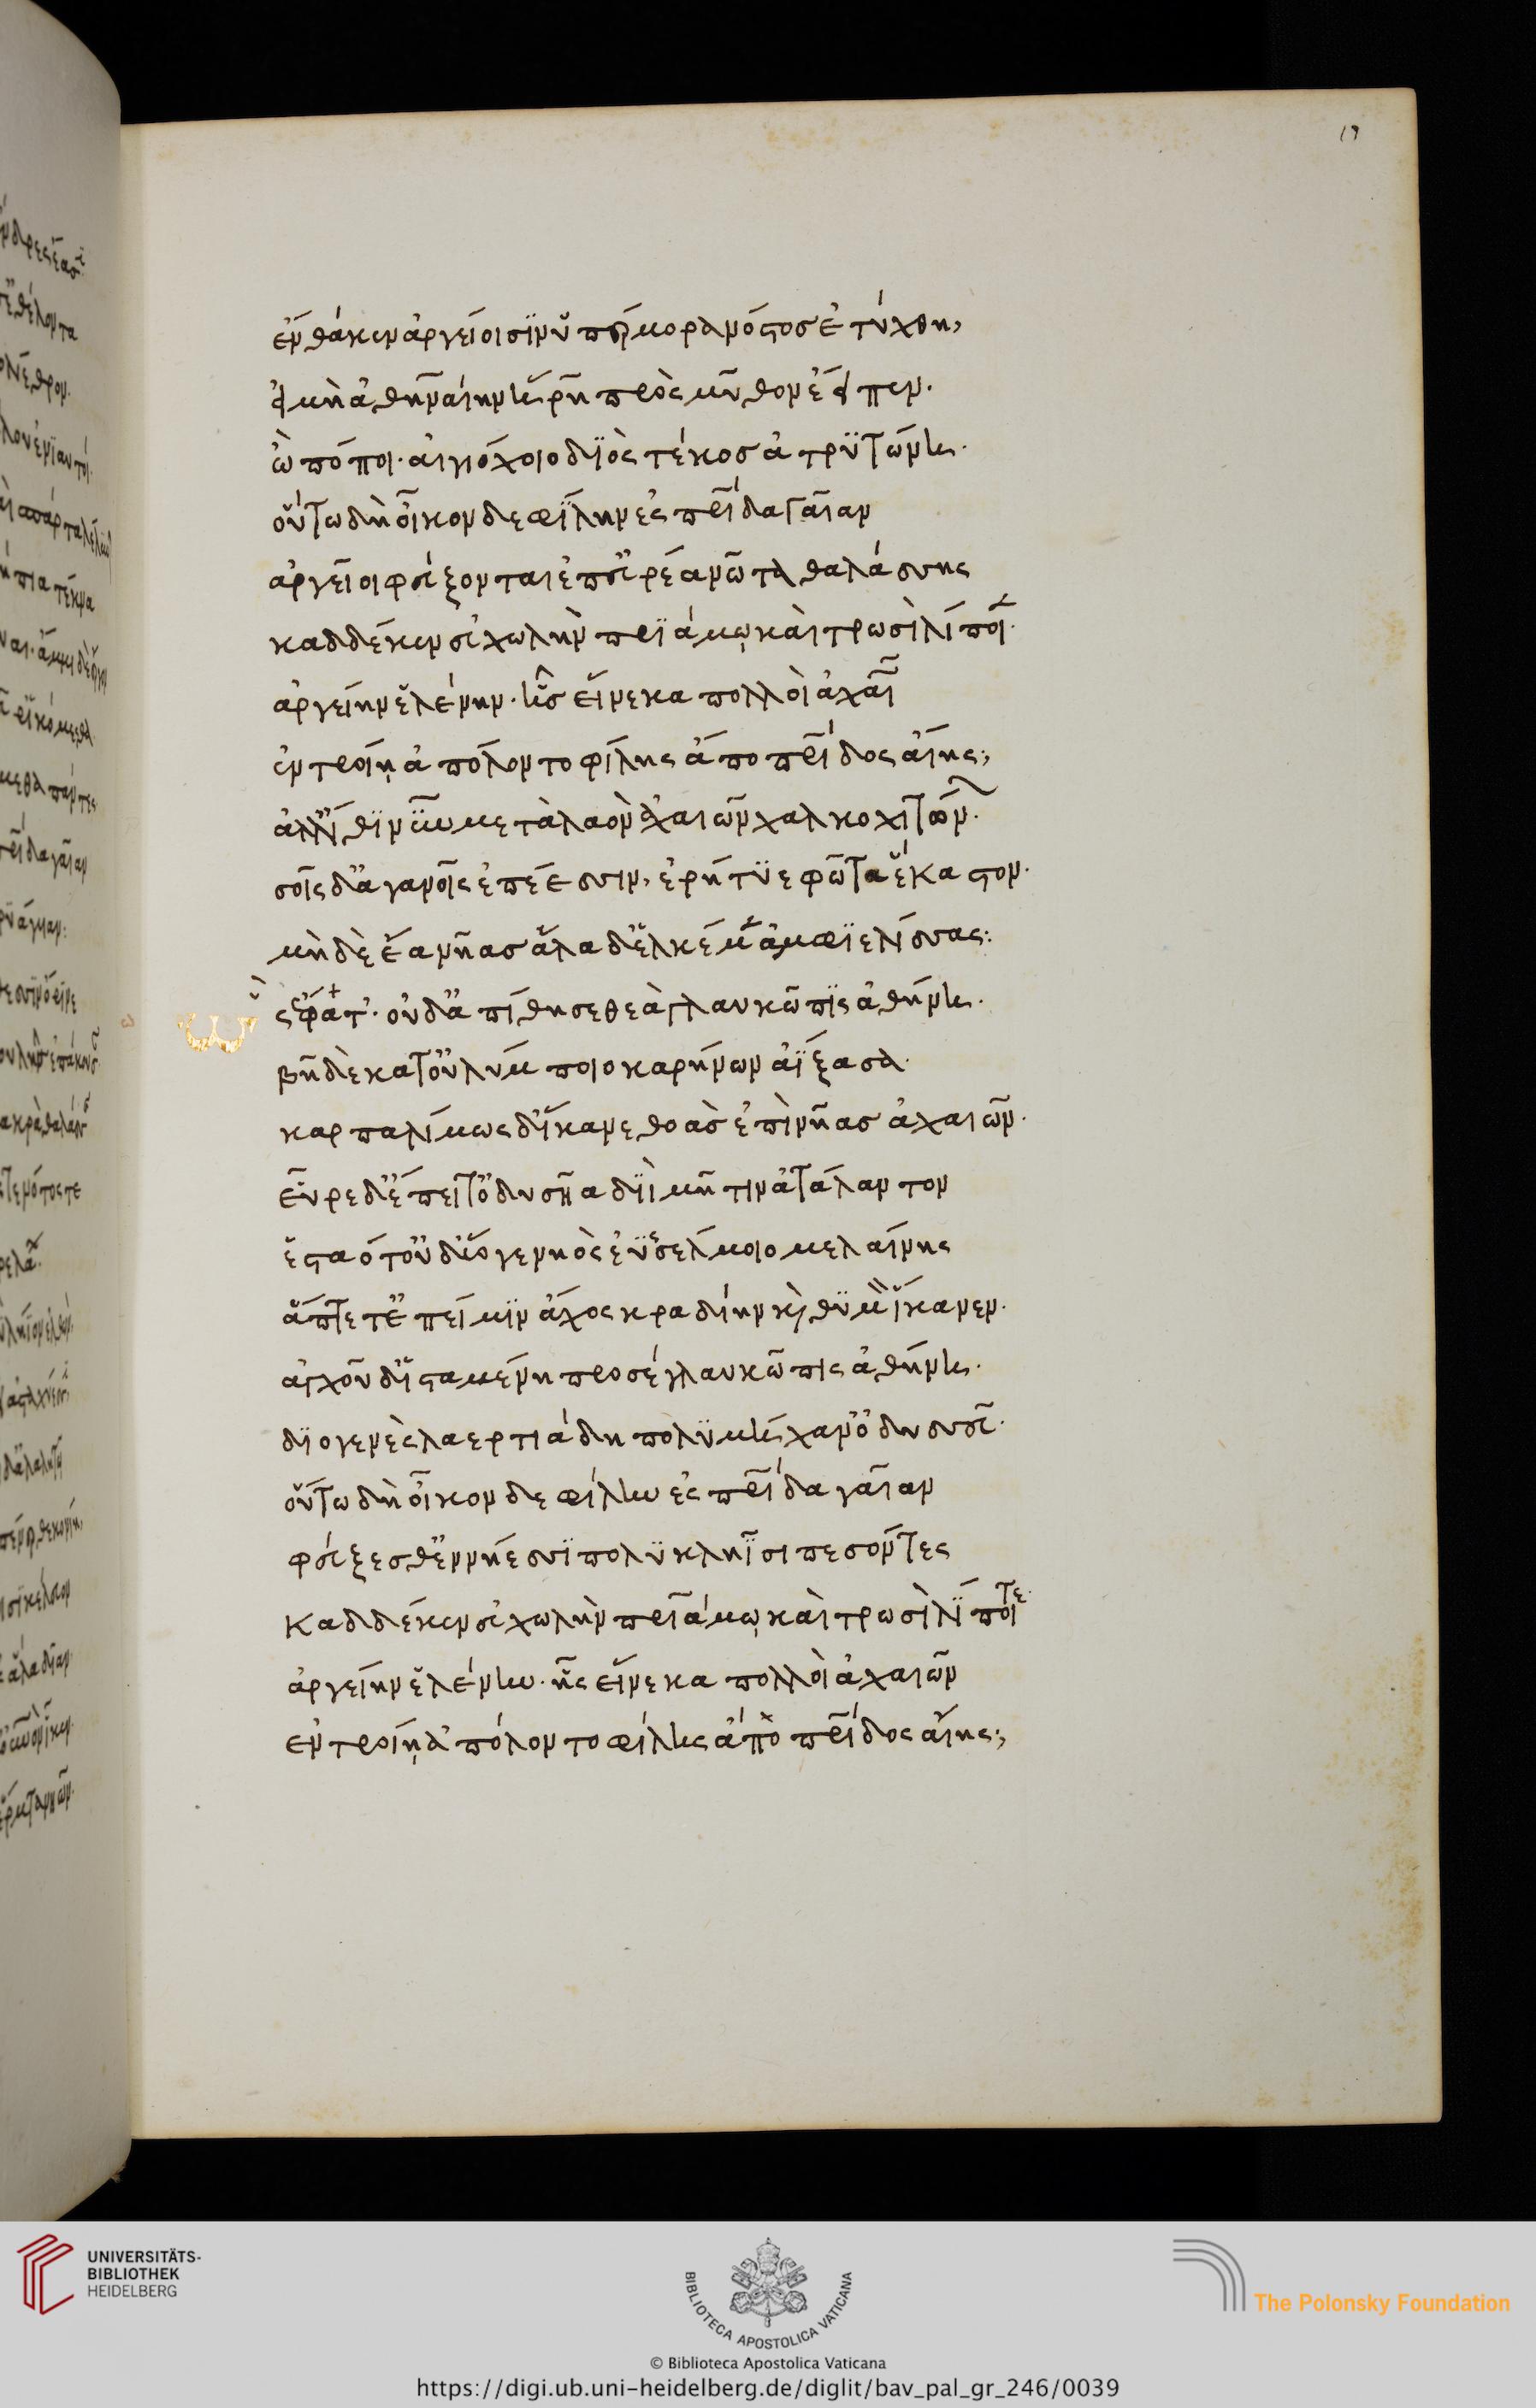 ἔνθά κεν ἀργείοισιν ὑπέρμορα νόστος ἐτύχθη,
εἰ μὴ ἀθηναίην ἥρη πρὸς μῦθον ἔειπεν.
ὢ πόποι. αἰγιόχοιο διὸς τέκος ἀτρυτώνη.
οὕτω δὴ οἶκον δε φίλην ἐς πατρίδα γαῖαν
ἀργεῖοι φεύξονται ἐπ' εὐρέα νῶτα θαλάσσης
καδδέ κεν εὐχωλὴν πριάμῳ καὶ τρωσὶ λίποιεν.
ἀργείην ἑλένην. ἧς εἵνεκα πολλοὶ ἀχαιῶν
ἐν τροίῃ ἀπόλοντο φίλης ἄπο πατρίδος αἴης;
ἀλλ' ἴθι νῦν μετὰ λαὸν ἀχαιῶν χαλκοχιτώνων.
σοῖς δ' ἀγανοῖς ἐπέεσσιν, ἐρήτυε φῶτα ἕκαστον.
μὴ δὲ ἔα νῆας ἅλα δ' ἑλκέμεν ἀμφιελίσσας:
ὣς ἔφατ'. οὐδ' ἀπίθησε θεὰ γλαυκῶπις ἀθήνη.
βῆ δὲ κατ' οὐλύμποιο καρήνων ἀΐξασα.
καρπαλίμως δ' ἵκανε θοὰς ἐπὶ νῆας ἀχαιῶν.
εὗρε δ' ἔπειτ' ὀδυσῆα διῒ μῆτιν ἀτάλαντον
ἑσταότ' οὐδ' ὅγε νηὸς ἐϋσσέλμοιο μελαίνης
ἅπτετ' ἐπεί μιν ἄχος κραδίην καὶ θυμὸν ἵκανεν.
ἀγχοῦ δ' ἱσταμένη προσέφη γλαυκῶπις ἀθήνη.
διογενὲς λαερτιάδη πολυμήχαν' ὀδυσσεῦ.
οὕτω δὴ οἶκον δε φίλην ἐς πατρίδα γαῖαν
φεύξεσθ' ἐν νήεσσι πολυκληῗσι πεσόντες
Καδδέ κεν εὐχωλὴν πριάμῳ καὶ τρωσὶ λίποιτε.
ἀργείην ἑλένην. ἧς εἵνεκα πολλοὶ ἀχαιῶν
ἐν τροίῃ ἀπόλοντο φίλης ἀπὸ πατρίδος αἴης;
UNIVERSITÄTS-
BIBLIOTHEK
HEIDELBERG
BIBLIOTECA APOSTOLICA VATICANA
The Polonsky Foundation
© Biblioteca Apostolica Vaticana
https://digi.ub.uni-heidelberg.de/diglit/bav_pal_gr_246/0039